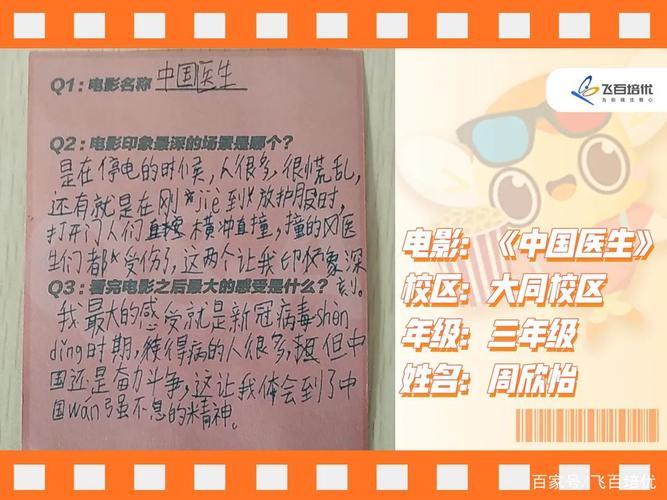 Q1：电影名称 中国医生
Q2：电影印象最深的场景是哪个？
是在停电的时候，人很多，很慌乱，
还有就是在刚jiē到放护服时，
打开门人们直接横冲直撞，撞的医
生们都受伤了，这两个让我印象深
刻。
Q3：看完电影之后最大的感受是什么？
我最大的感受就是新冠病毒shèn
dìng时期，得病的人很多，但中
国还是奋力斗争，这让我体会到了中
国wán强不息的精神。
飞百培优
电影：《中国医生》
校区：大同校区
年级：三年级
姓名：周欣怡
百家号/飞百培优